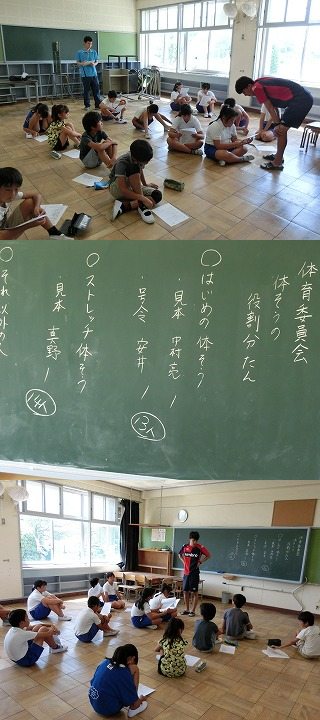 体育委員会
体そうの
役割分たん
○はじめの体そう
・見本 中村亮 1
・号令 安井 1
13人
○ストレッチ体そう
・見本 真野 1
14人
○それ以外の人